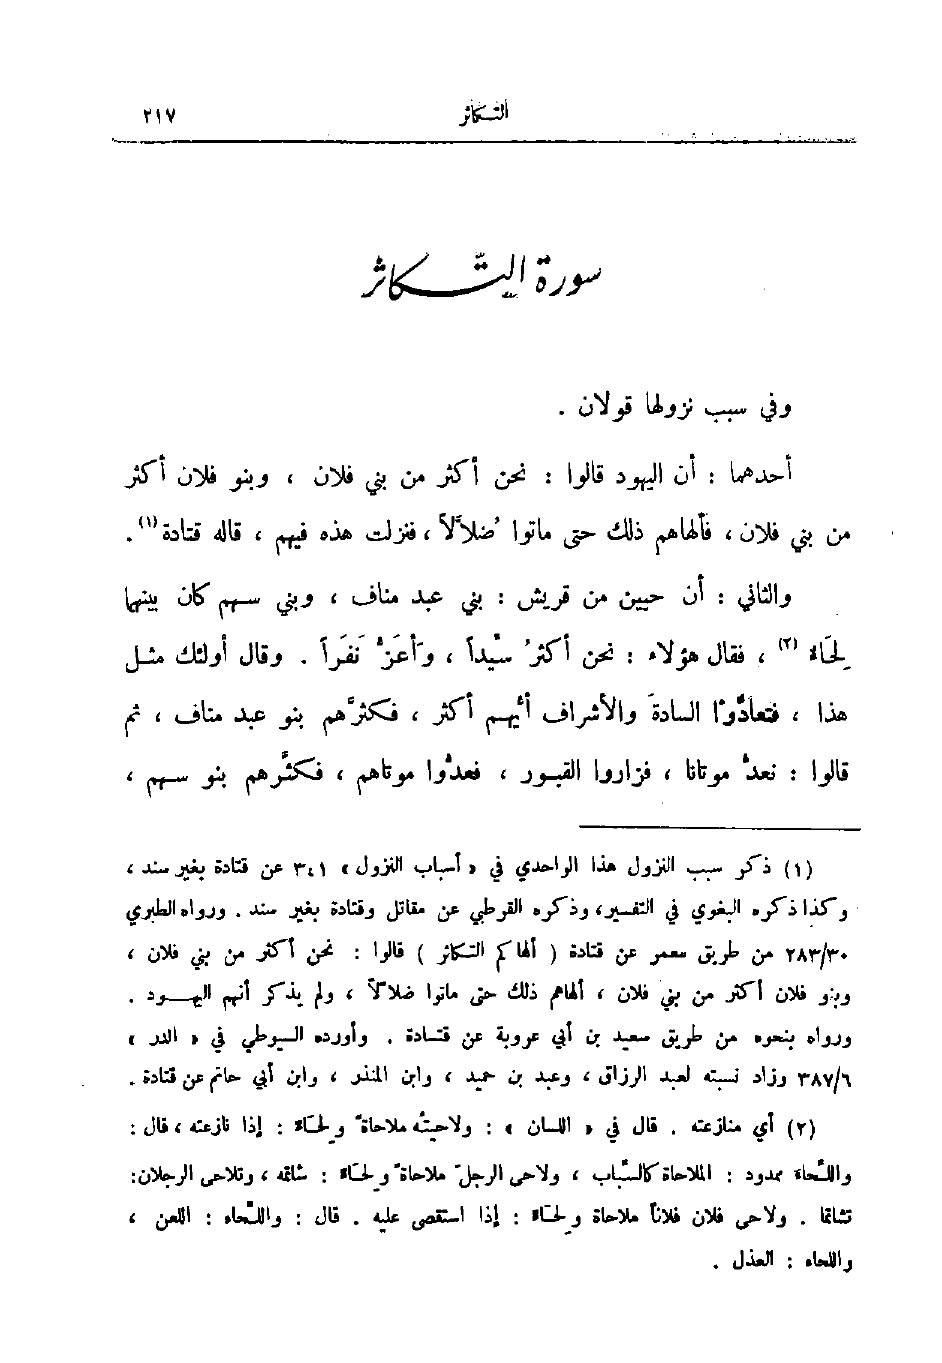 التكاثر ٢١٧
سورة التّكاثر
وفي سبب نزولها قولان .
أحدهما : أن اليهود قالوا : نحن أكثر من بني فلان ، وبنو فلان أكثر
من بني فلان ، فألهاهم ذلك حتى ماتوا ضُلاَّلاً ، فنزلت هذه فيهم ، قاله قتادة (١) .
والثاني : أن حيين من قريش : بني عبد مناف ، وبني سهم كان بينهما
لِحَاء (٢) ، فقال هؤلاء : نحن أكثرُ سيِّداً ، وأعَزُّ نَفَراً . وقال أولئك مثل
هذا ، فتعادُّوا السادةَ والأشراف أيُّهم أكثر ، فكثرَهم بنو عبد مناف ، ثم
قالوا : نعدُّ موتانا ، فزاروا القبور ، فعدُّوا موتاهم ، فكثَرهم بنو سهم ،
(١) ذكر سبب النزول هذا الواحدي في « أسباب النزول » ٣٤١ عن قتادة بغير سند ،
وكذا ذكره البغوي في التفسير، وذكره القرطبي عن مقاتل وقتادة بغير سند . ورواه الطبري
٢٨٣/٣٠ من طريق معمر عن قتادة ( ألهاكم التكاثر ) قالوا : نحن أكثر من بني فلان ،
وبنو فلان أكثر من بني فلان ، ألهاهم ذلك حتى ماتوا ضلالاً ، ولم يذكر أنهم اليهود .
ورواه بنحوه من طريق سعيد بن أبي عروبة عن قتادة . وأورده السيوطي في « الدر »
٣٨٧/٦ وزاد نسبته لعبد الرزاق ، وعبد بن حميد ، وابن المنذر ، وابن أبي حاتم عن قتادة .
(٢) أي منازعته . قال في « اللسان » : ولاحيتُه ملاحاةً ولِحَاءً : إذا نازعته ، قال :
واللِّحاء ممدود : الملاحاة كالسِّباب ، ولاحى الرجلَ ملاحاةً ولِحَاءً : شاتمه ، وتلاحى الرجلان:
تشاتما . ولاحى فلان فلاناً ملاحاة ولِحَاءً : إذا استقصى عليه . قال : واللِّحاء : اللعن ،
واللحاء : العذل .